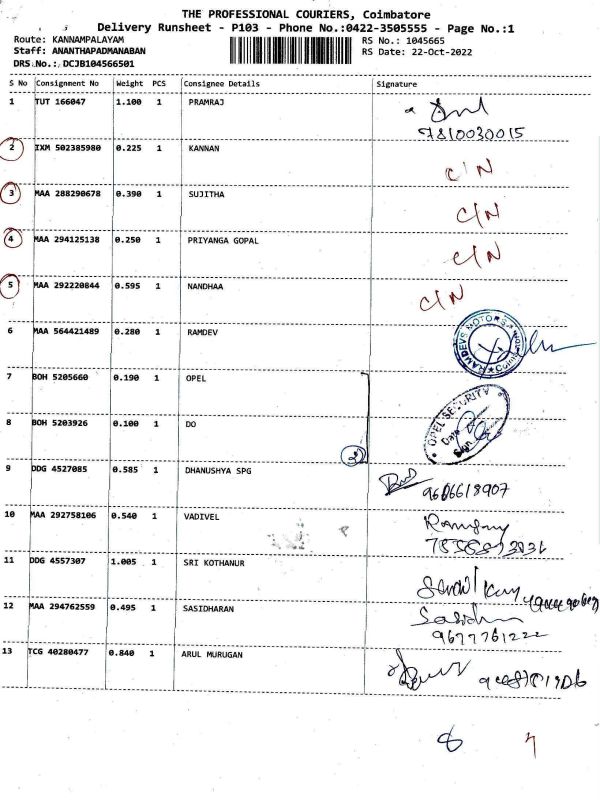 THE PROFESSIONAL COURIERS, Coimbatore
Delivery Runsheet - P103 - Phone No.:0422-3505555 - Page No.:1
Route: KANNAMPALAYAM RS No.: 1045665
Staff: ANANTHAPADMANABAN RS Date: 22-Oct-2022
DRS No.: DCJB104566501
S No Consignment No Weight PCS Consignee Details Signature
1 TUT 166047 1.100 1 PRAMRAJ
7810030015
2 IXM 502385980 0.225 1 KANNAN C/N
3 MAA 288290678 0.390 1 SUJITHA C/N
4 MAA 294125138 0.250 1 PRIYANGA GOPAL C/N
5 MAA 292220844 0.595 1 NANDHAA C/N
6 MAA 564421489 0.280 1 RAMDEV RAMDEVS MOTORS
7 BOH 5205660 0.190 1 OPEL
8 BOH 5203926 0.100 1 DO OPEL SECURITY Date Sign
2
9 DDG 4527085 0.585 1 DHANUSHYA SPG
9606618907
10 MAA 292758106 0.540 1 VADIVEL
11 DDG 4557307 1.005 1 SRI KOTHANUR
12 MAA 294762559 0.495 1 SASIDHARAN
9677761222
13 TCG 40280477 0.840 1 ARUL MURUGAN
8